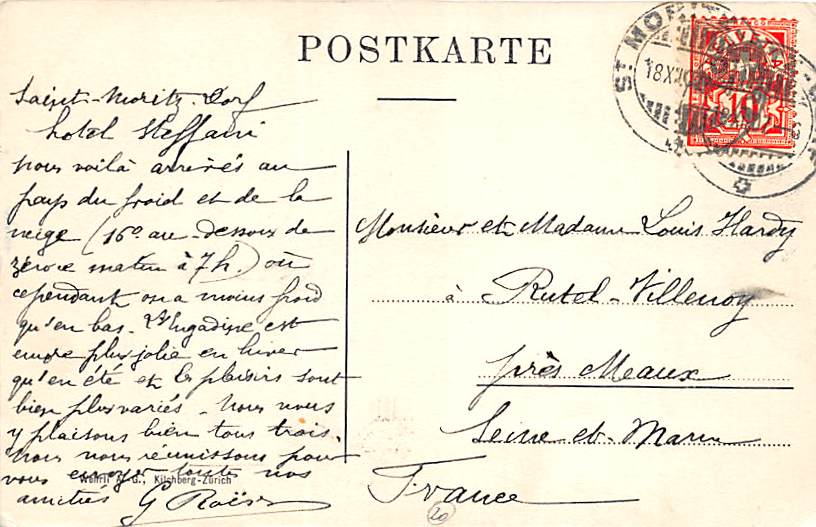 POSTKARTE
ST MORITZ
18.X
HELVETIA
10
Saint-Moritz-Dorf
hotel Steffani
nous voilà arrivés au
pays du froid et de la
neige (16° au-dessous de
zéro ce matin à 7h) où
cependant on a moins froid
qu'en bas. L'Engadine est
encore plus jolie en hiver
qu'en été et les plaisirs sont
bien plus variés. Nous nous
y plaisons bien tous trois.
Nous nous réunissons pour
vous envoyer toutes nos
amitiés G
Wehrli A.-G., Kilchberg-Zürich
Monsieur et Madame Louis Hardy
à Rutel-Villenoy
près Meaux
Seine-et-Marne
France
20